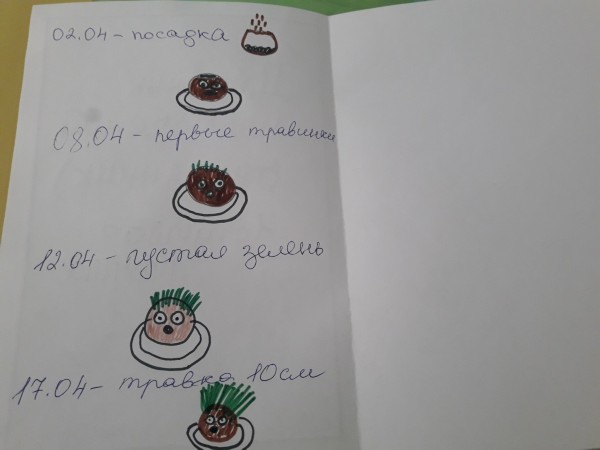 02.04 – посадка
08.04 – первые травинки
12.04 – густая зелень
17.04 – травка 10см